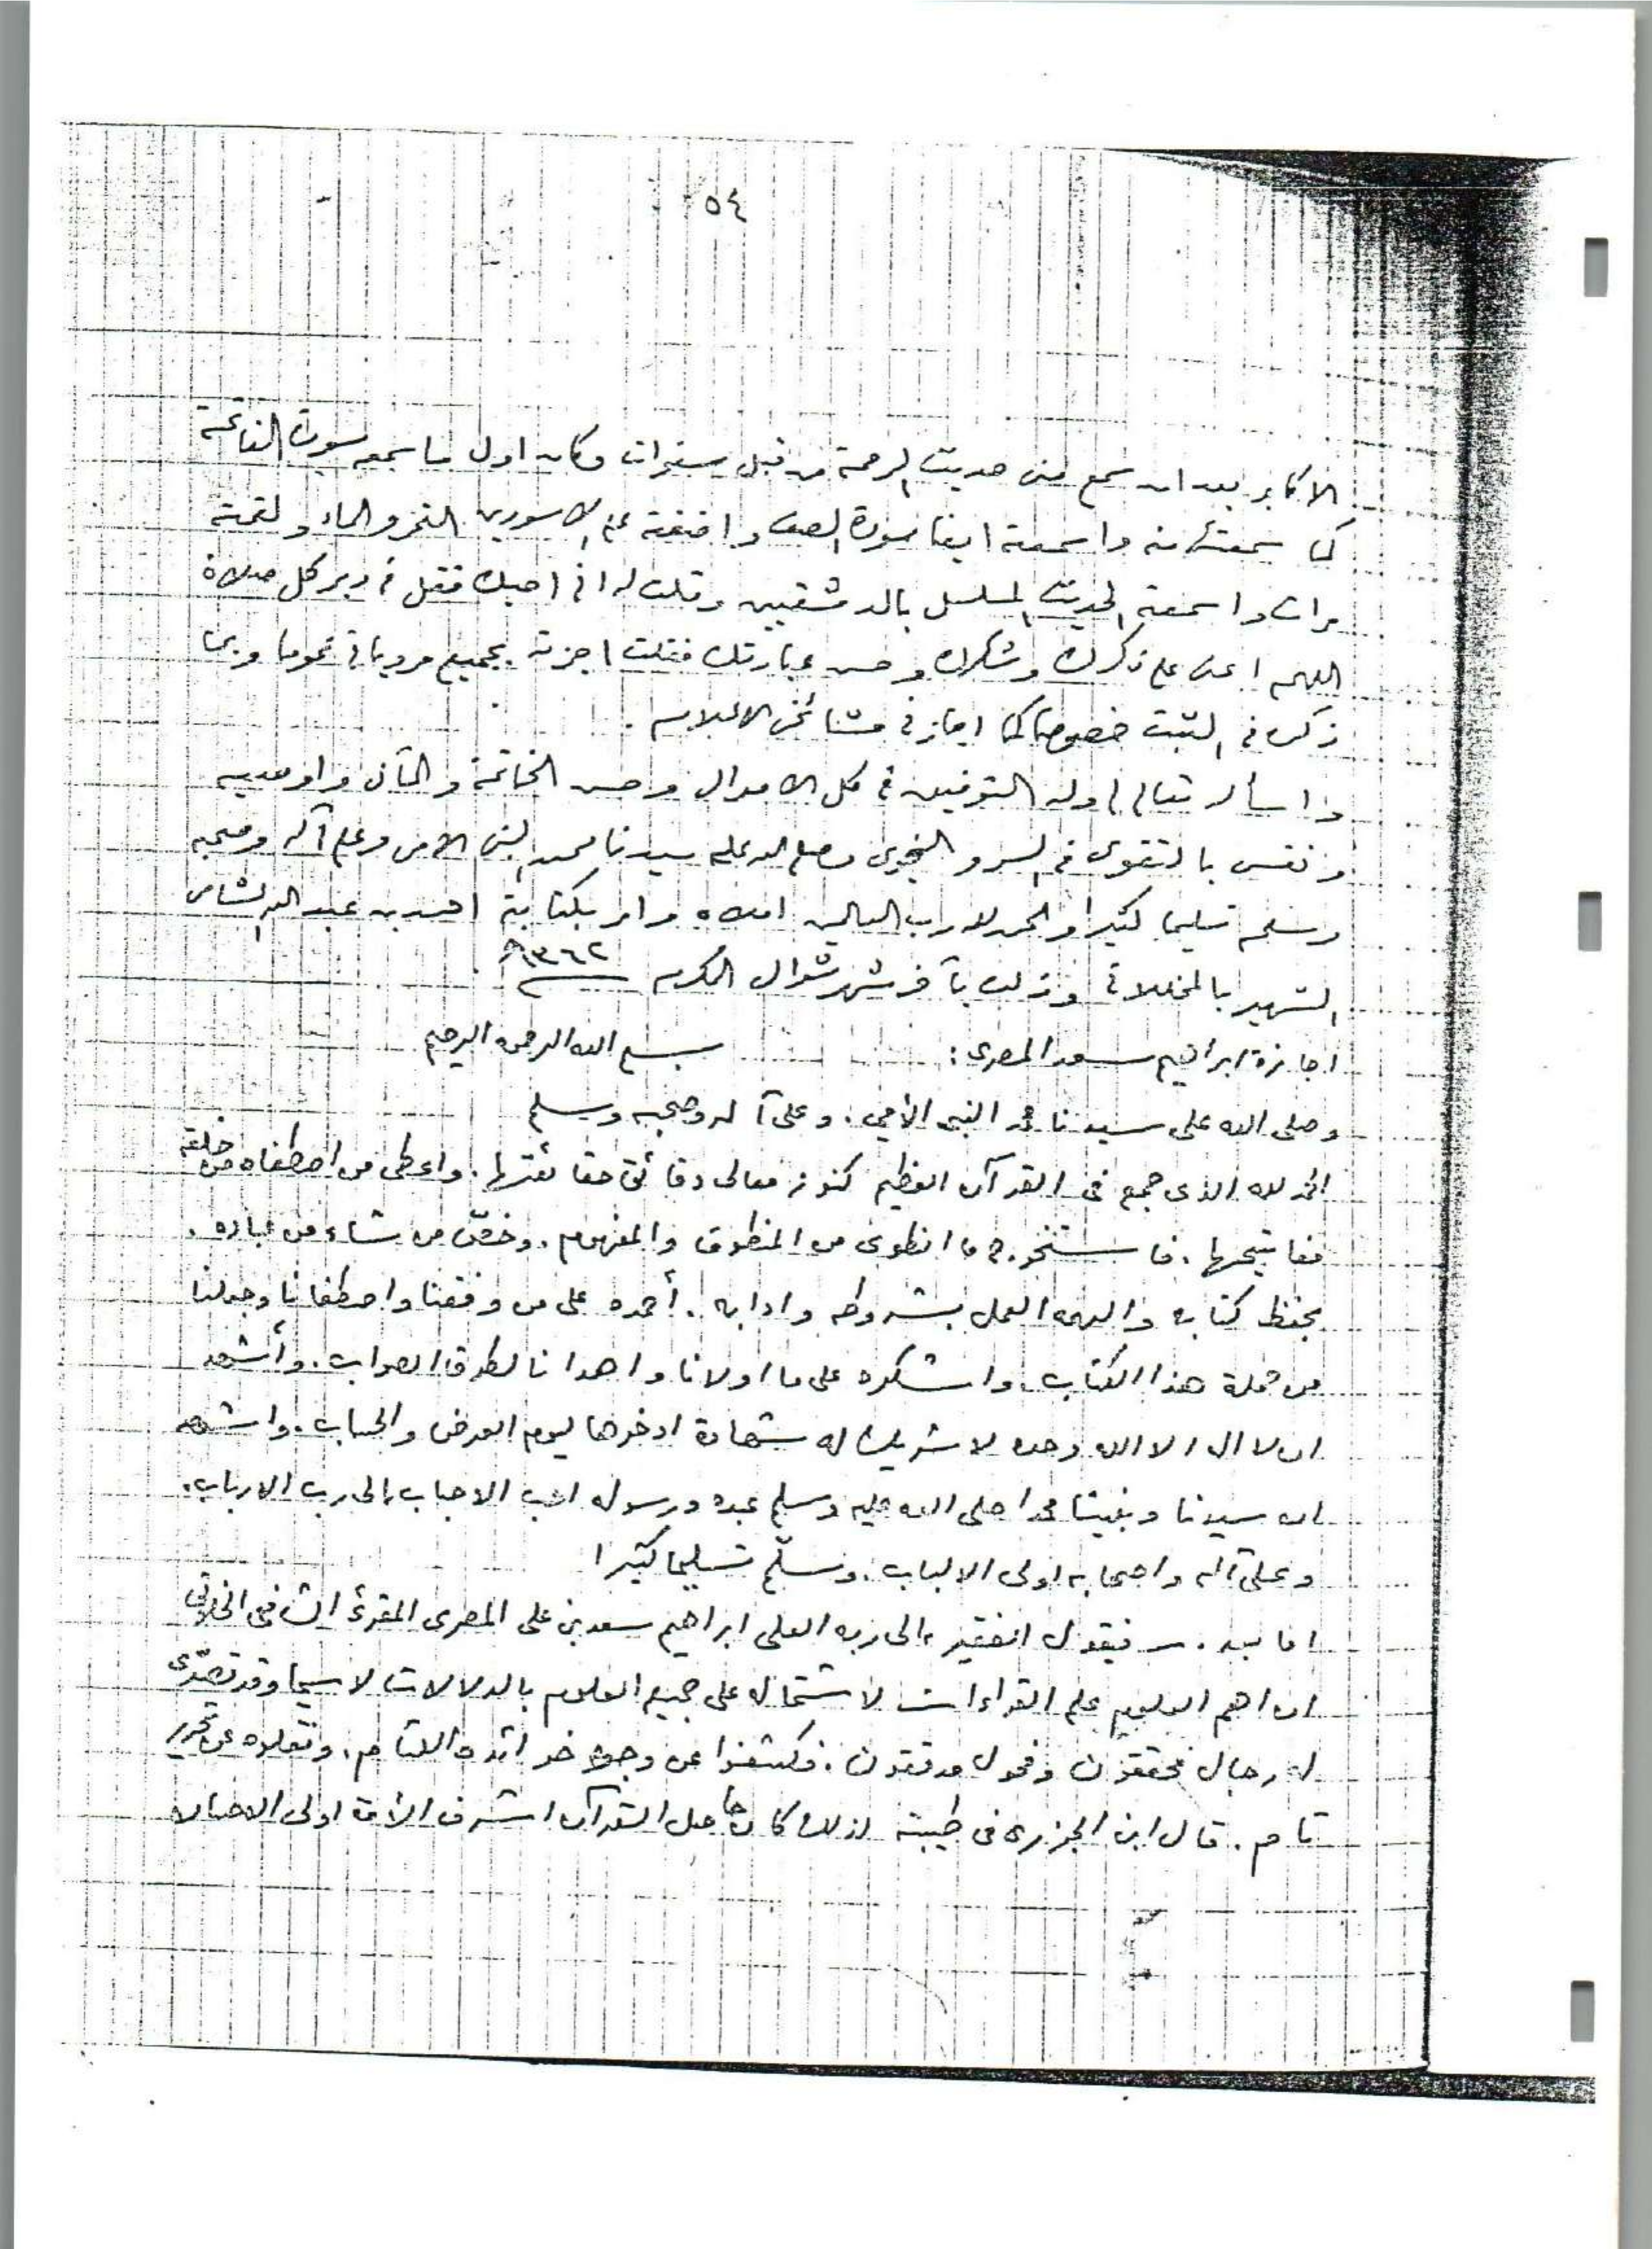 ٥٤
الاكابر بعد ان سمع مني حديث الرحمة من قبل سنوات وكان اول ما سمعه سورة الفاتحة
كما سمعتها منه واسمعته ايضا سورة الصف واضفته على الاسودين التمر والماء ولقمته
مرات واسمعته الحديث المسلسل بالدمشقيين وقلت له اني احبك فقل في دبر كل صلاة
اللهم اعني على ذكرك وشكرك وحسن عبادتك فقلت اجزته بجميع مروياتي عموما وبما
ذكر في الثبت خصوصا كما اجازني مشائخي الاعلام .
واسأله تعالى لي وله التوفيق في كل الاحوال وحسن الخاتمة والمآل واوصيه
ونفسي بالتقوى في السر والنجوى وصلى الله على سيدنا محمد النبي الامي وعلى آله وصحبه
وسلم تسليما كثيرا والحمد لله رب العالمين املاه وامر بكتابته احمد بن عبد الله الشامي
الشهير بالمخللاتي وذلك بآخر شهر شوال المكرم ١٣٦٢هـ
اجازة ابراهيم سعد المصري : بسم الله الرحمن الرحيم
وصلى الله على سيدنا محمد النبي الأمي . وعلى آله وصحبه وسلم
الحمد لله الذي جمع في القرآن العظيم كنوز معالى دقائق حقائقها . واعطى من اصطفاه من خلقه
مفاتيحها . فاستخرج ما انطوى من المنطوق والمفهوم . وخصّ من شاء من عباده .
بحفظ كتابه والهمه العمل بشروطه وادابه . أحمده على من وفقنا واصطفانا وجعلنا
من حملة هذا الكتاب . واشكره على ما اولانا واهدانا لطرق الصواب . وأشهد
ان لا اله الا الله وحده لا شريك له شهادة ادخرها ليوم العرض والحساب . واشهد
ان سيدنا ونبينا محمدا صلى الله عليه وسلم عبده ورسوله احب الاحباب الى رب الارباب .
وعلى آله واصحابه اولى الالباب . وسلّم تسليما كثيرا
اما بعد . فيقول الفقير الى ربه العلى ابراهيم سعد بن على المصرى المقرئ الشافعى الخلوتى
ان اهم العلوم علم القراءات لاشتماله على جميع العلوم بالدلالات لا سيما وقد تصدّى
له رجال محققون وفحول مدققون . فكشفوا عن وجوه خرائده اللثام . ونقلوه عن تحرير
تام . قال ابن الجزرى فى طيبته لذلك كان حاصل القرآن اشرف الأمة اولى الاحسان